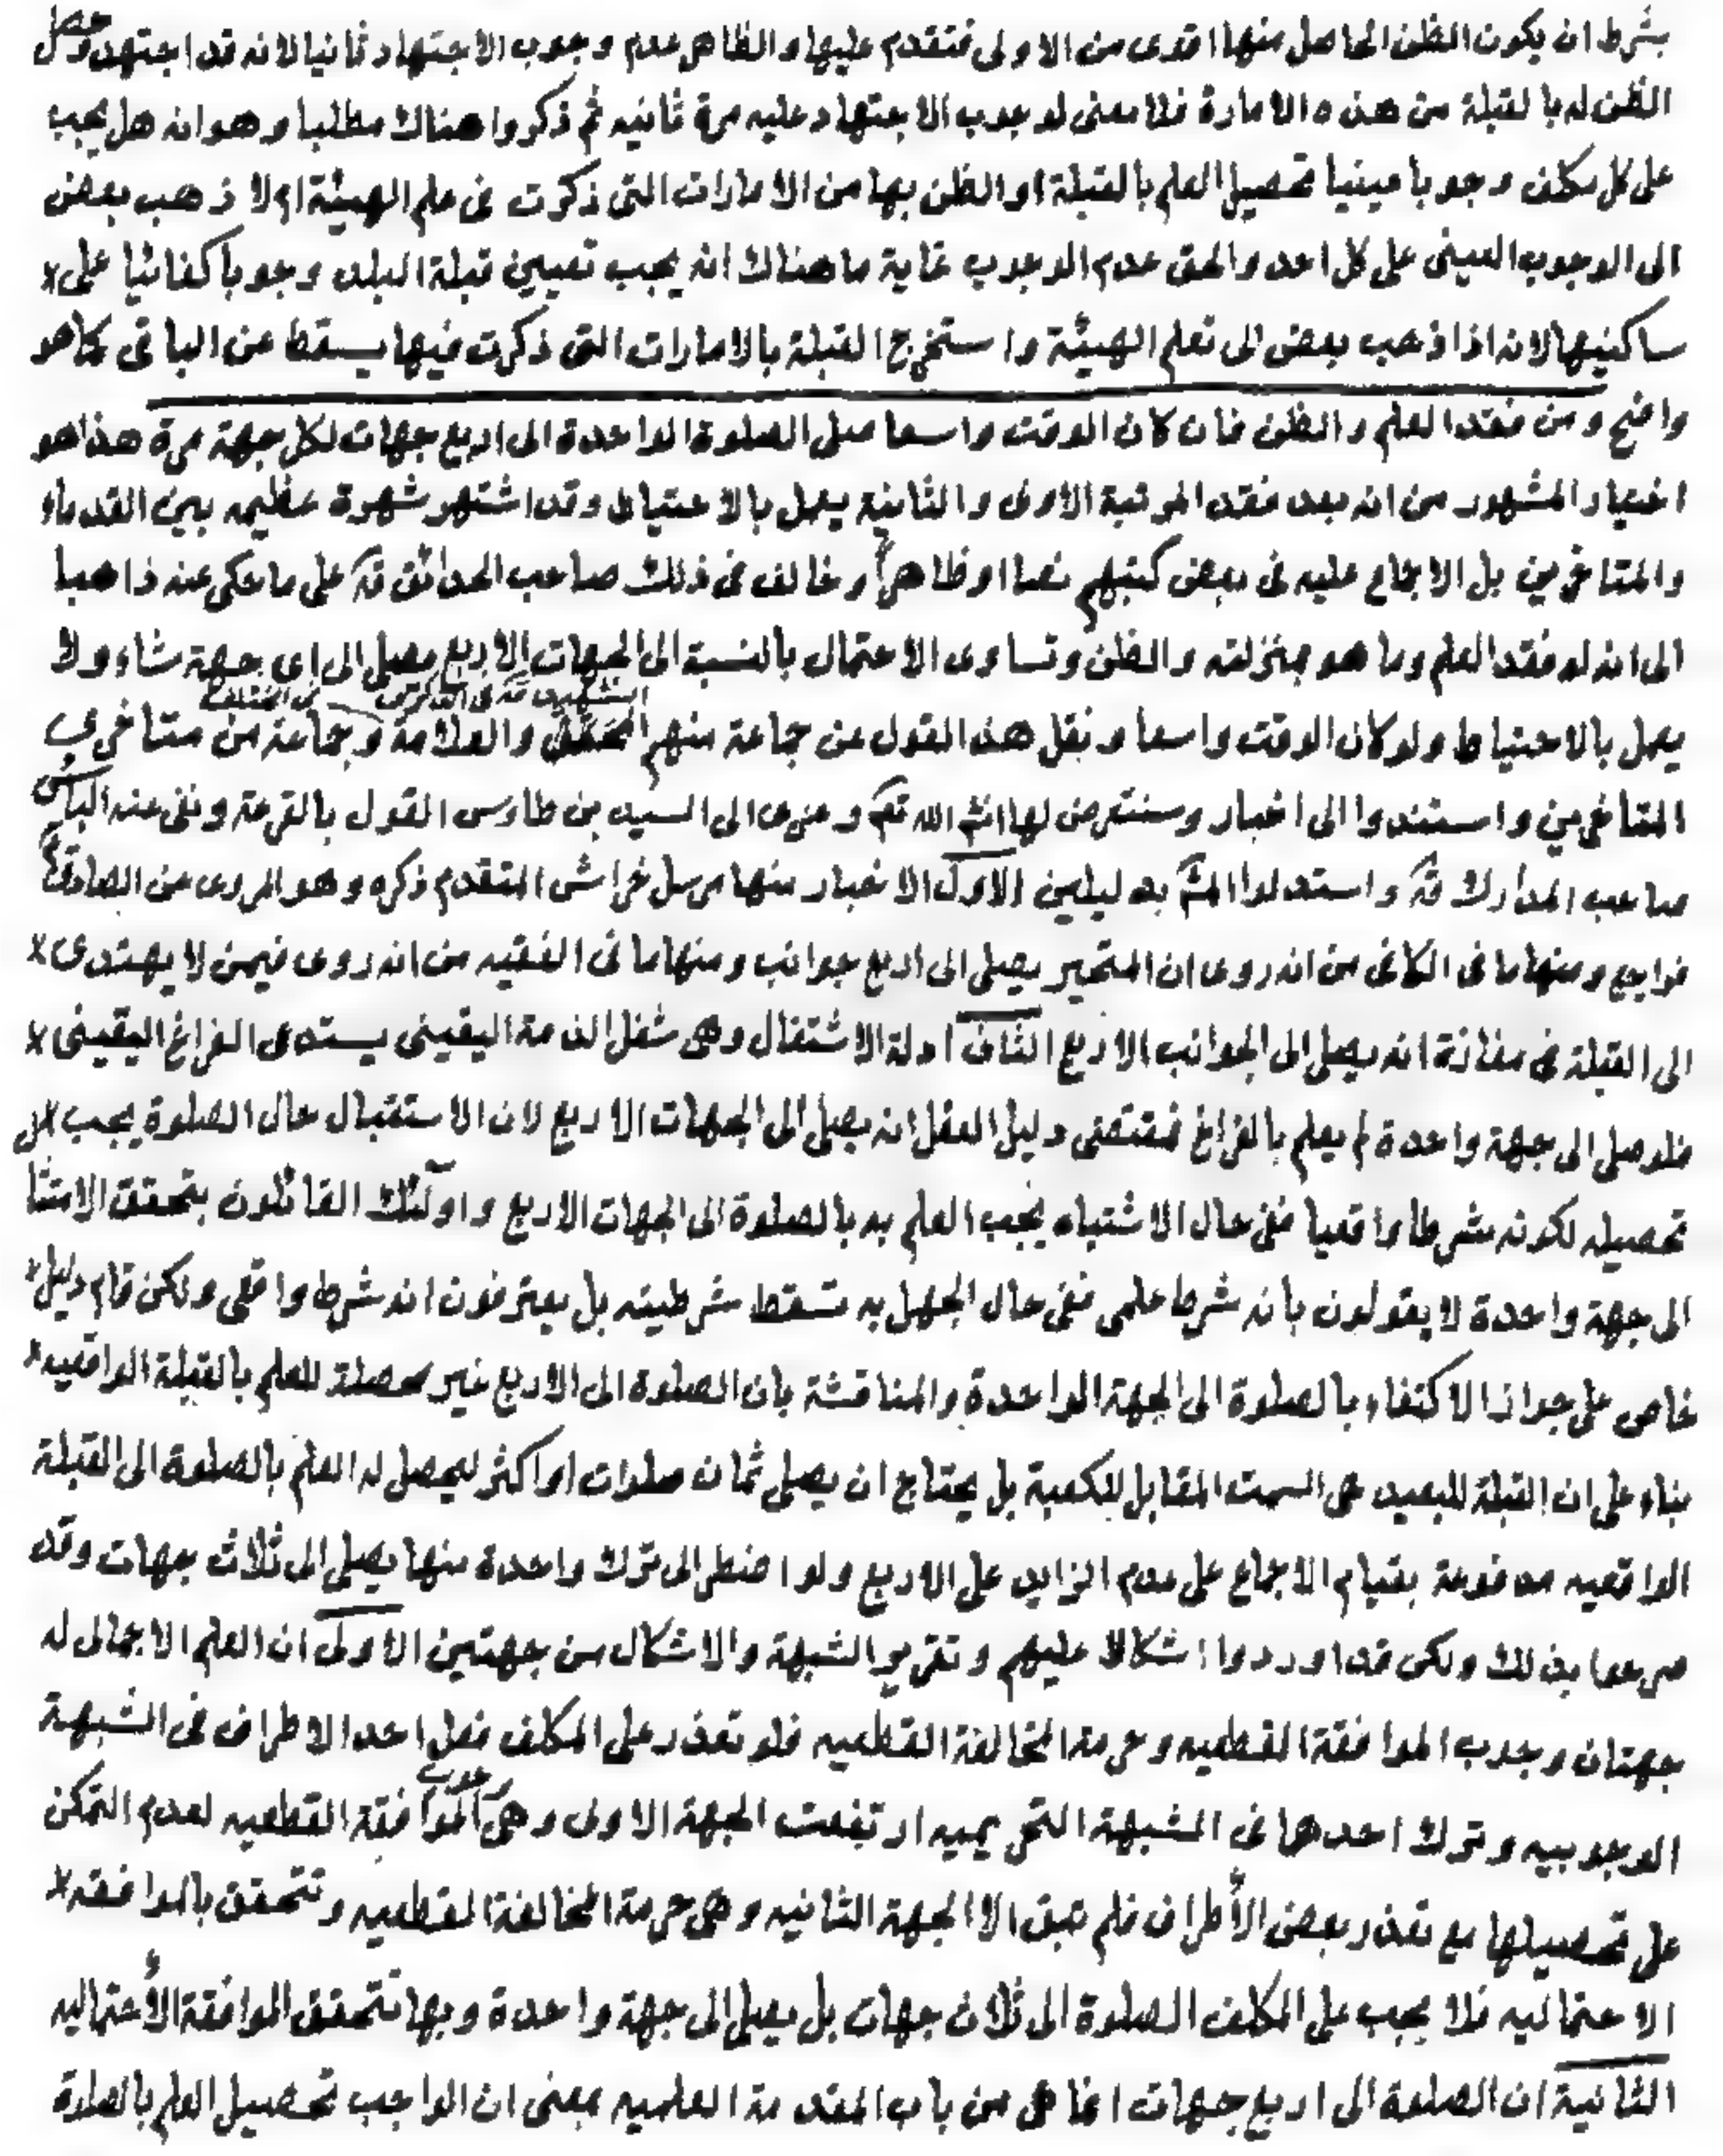 بشرط ان يكون الظن الحاصل منها اقوى من الاولى فتقدم عليها والظاهر عدم وجوب الاجتهاد ثانيا لانه قد اجتهد وحصل
الظن له بالقبلة من هذه الامارة فلا معنى لوجوب الاجتهاد عليه مرة ثانيه ثم ذكروا هناك مطلبا وهو انه هل يجب
على كل مكلف وجوبا عينيا تحصيل العلم بالقبلة او الظن بها من الامارات التى ذكرت فى علم الهيئة ام لا ذهب بعض
الى الوجوب العينى على كل احد والحق عدم الوجوب غاية ما هناك انه يجب تعيين قبلة البلد وجوبا كفائيا على
ساكنيها لانه اذا ذهب بعض الى تعلم الهيئة واستخرج القبلة بالامارات التى ذكرت فيها يسقط عن الباقى كما هو
واضح ومن فقد العلم والظن فان كان الوقت واسعا صلى الصلوة الواحدة الى اربع جهات لكل جهة مرة هذا هو
اختيار المشهور من انه بعد فقد المرتبة الاولى والثانية يعمل بالاحتياط وقد اشتهر شهرة عظيمه بين القدماء
والمتاخرين بل الاجماع عليه فى بعض كتبهم نصا او ظاهراً وخالف فى ذلك صاحب الحدائق قدّه على ما حكى عنه ذاهبا
الى انه لو فقد العلم وما هو بمنزلته والظن وتساوى الاحتمال بالنسبة الى الجهات الاربع يصلى الى اى جهة شاء ولا
يعمل بالاحتياط ولو كان الوقت واسعا ونقل هذا القول عن جماعة منهم الشهيد قدّه فى الذكرى والعلامة فى المختلف وجماعة من متاخرى
المتاخرين واستندوا الى اخبار وسنتعرض لها انشاء الله تعم وعزى الى السيد بن طاوس القول بالقرعة ونفى عنه الباس
صاحب المدارك قدّه واستدلوا المشّ بدليلين الاول الاخبار منها مرسل خراش المتقدم ذكره وهو المروى عن الصادق ع
فراجع ومنها ما فى الكافى من انه روى ان المتحير يصلى الى اربع جوانب ومنها ما فى الفقيه من انه روى فيمن لا يهتدى
الى القبلة فى مفازة انه يصلى الى الجوانب الاربع الثانى ادلة الاشتغال وهى شغل الذمة اليقينى يستدعى الفراغ اليقينى
فلو صلى الى جهة واحدة لم يعلم بالفراغ فمقتضى دليل العقل انه يصلى الى الجهات الاربع لان الاستقبال حال الصلوة يجب
تحصيله لكونه شرطا واقعيا ففى حال الاشتباه يجب العلم به بالصلوة الى الجهات الاربع واولئك القائلون بتحقق الامتثا
الى جهة واحدة لا يقولون بانه شرط علمى ففى حال الجهل به تسقط شرطيته بل يعترفون انه شرط واقعى ولكن قام دليل
خاص على جواز الاكتفاء بالصلوة الى الجهة الواحدة والمناقشة بان الصلوة الى الاربع غير محصلة للعلم بالقبلة الواقعيه
بناء على ان القبلة للبعيد هى السمت المقابل للكعبة بل يحتاج ان يصلى ثمان صلوات او اكثر ليحصل له العلم بالصلوة الى القبلة
الواقعيه مدفوعة بقيام الاجماع على عدم الزايد على الاربع ولو اضطر الى ترك واحدة منها يصلى الى ثلاث جهات وقد
صرحوا بذلك ولكن قد اوردوا اشكالا عليهم وتقرير الشبهة والاشكال من جهتين الاولى ان العلم الاجمالى له
جهتان وجوب الموافقة القطعيه وحرمة المخالفة القطعيه فلو تعذر على المكلف فعل احد الاطراف فى الشبهة
الوجوبيه وترك احدها فى الشبهة التحريميه ارتفعت الجهة الاولى وهى وجوب الموافقة القطعيه لعدم التمكن
على تحصيلها مع تعذر بعض الأطراف فلم تبق الا الجهة الثانيه وهى حرمة المخالفة القطعيه وتتحقق بالموافقه
الاحتماليه فلا يجب على المكلف الصلوة الى ثلاث جهات بل يصلى الى جهة واحدة وبها تتحقق الموافقة الأحتماليه
الثانية ان الصلوة الى اربع جهات انما هى من باب المقدمة العلميه بمعنى ان الواجب تحصيل العلم بالصلوة